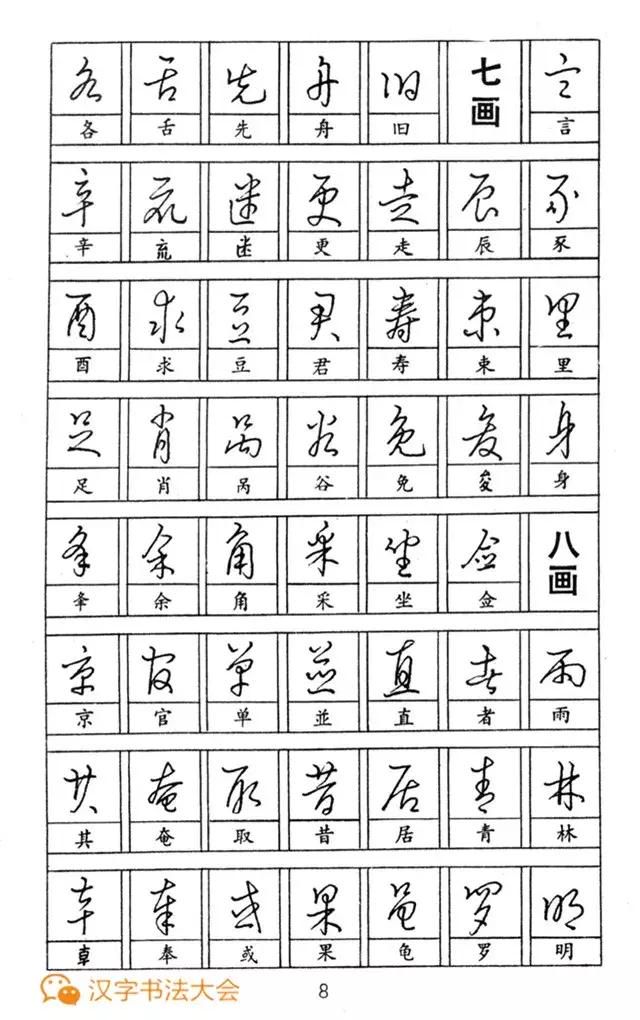 各 舌 先 舟 旧 七画 言
各 舌 先 舟 旧 言
辛 㐬 迷 更 走 辰 豕
辛 㐬 迷 更 走 辰 豕
酉 求 豆 君 寿 束 里
酉 求 豆 君 寿 束 里
足 肖 呙 谷 免 夋 身
足 肖 呙 谷 免 夋 身
夆 余 角 采 坐 佥 八画
夆 余 角 采 坐 佥
京 官 单 並 直 者 雨
京 官 单 並 直 者 雨
其 奄 取 昔 居 青 林
其 奄 取 昔 居 青 林
卓 奉 或 果 龟 罗 明
卓 奉 或 果 龟 罗 明
汉字书法大会 8